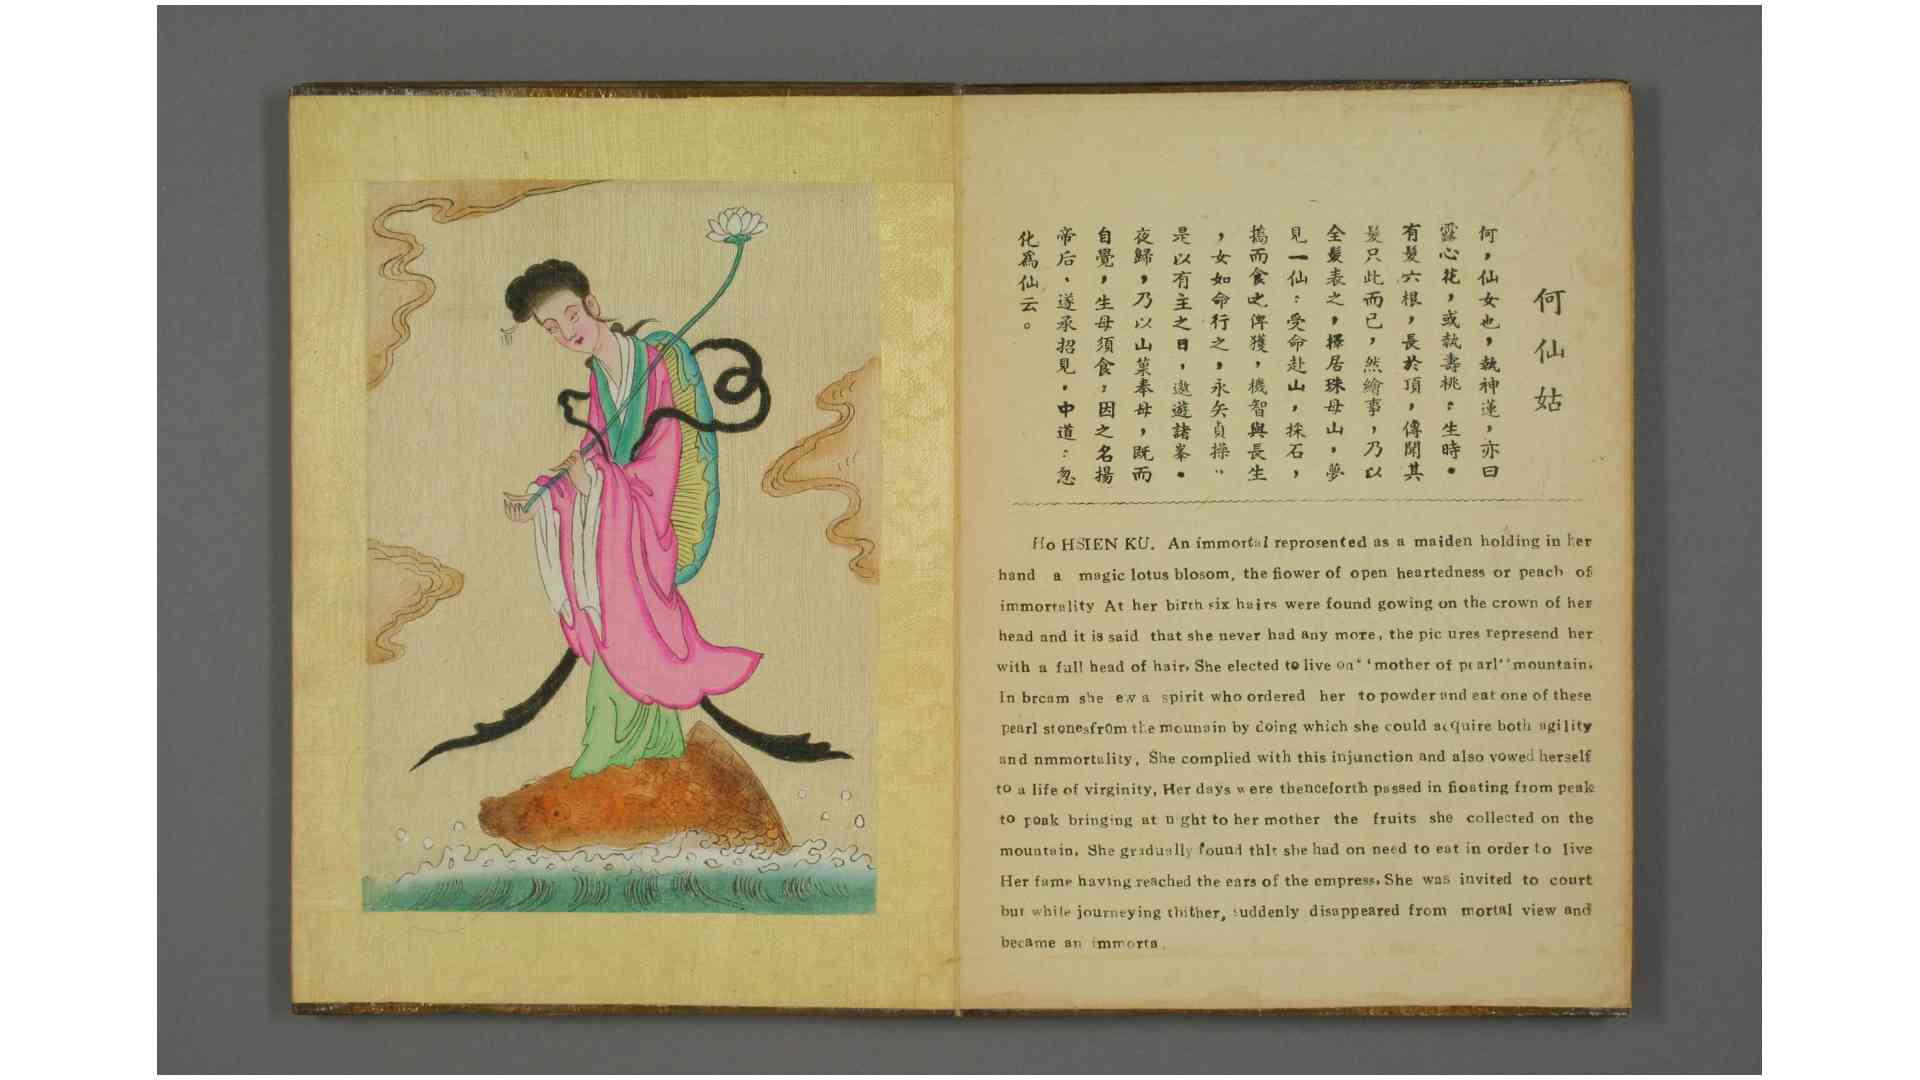 何仙姑
何，仙女也，執神蓮，亦曰
露心花，或執壽桃：生時。
有髮六根，長於頂，傳聞其
髮只此而已，然繪事，乃以
全髮表之，擇居珠母山，夢
見一仙：受命赴山，採石，
搗而食之俾獲，機智與長生
，女如命行之，永矢貞操，，
是以有主之日，遨遊諸峯。
夜歸，乃以山菓奉母，既而
自覺，生母須食，因之名揚
帝后、遂承招見。中道：忽
化爲仙云。
Ho HSIEN KU. An immortal reprosented as a maiden holding in her
hand a magic lotus blosom, the fiower of open heartedness or peach of
immortality At her birth six hairs were found gowing on the crown of her
head and it is said that she never had any more, the pic ures represend her
with a full head of hair, She elected to live on“ ‘mother of pearl’’ mountain,
In brcam she ew a spirit who ordered her to powder and eat one of these
pearl stonesfr0m the mounain by doing which she could acquire both agility
and nmmortality, She complied with this injunction and also vowed herself
to a life of virginity, Her days were thenceforth passed in fioating from peak
to poak bringing at night to her mother the fruits she collected on the
mountain, She gradually found thlt she had on need to eat in order to live
Her fame having reached the ears of the empress, She was invited to court
but while journeying thither, suddenly disappeared from mortal view and
became an immorta.